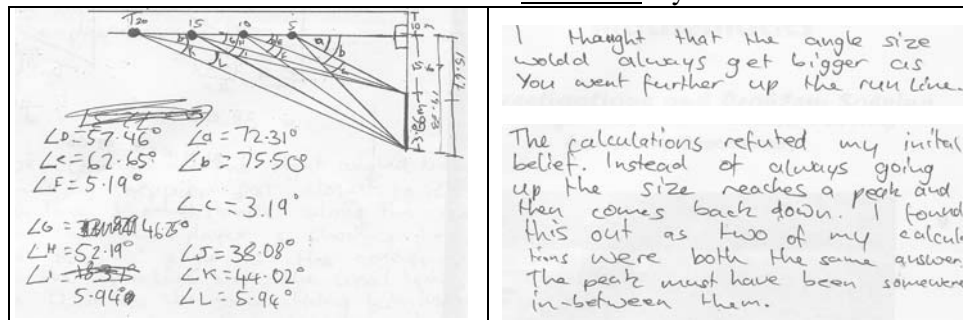 T20 15 10 5
∠D=57.46° ∠a=72.31°
∠e=62.65° ∠b=75.50°
∠F=5.19°
∠c=3.19°
∠G= 46.25°
∠H=52.19° ∠J=38.08°
∠I= ∠K=44.02°
5.94° ∠L=5.94°
I thought that the angle size
would always get bigger as
You went further up the run line.
The calculations refuted my inital
belief. Instead of always going
up the size reaches a peak and
then comes back down. I found
this out as two of my calcula
tions were both the same answer.
The peak must have been somewere
in-between them.